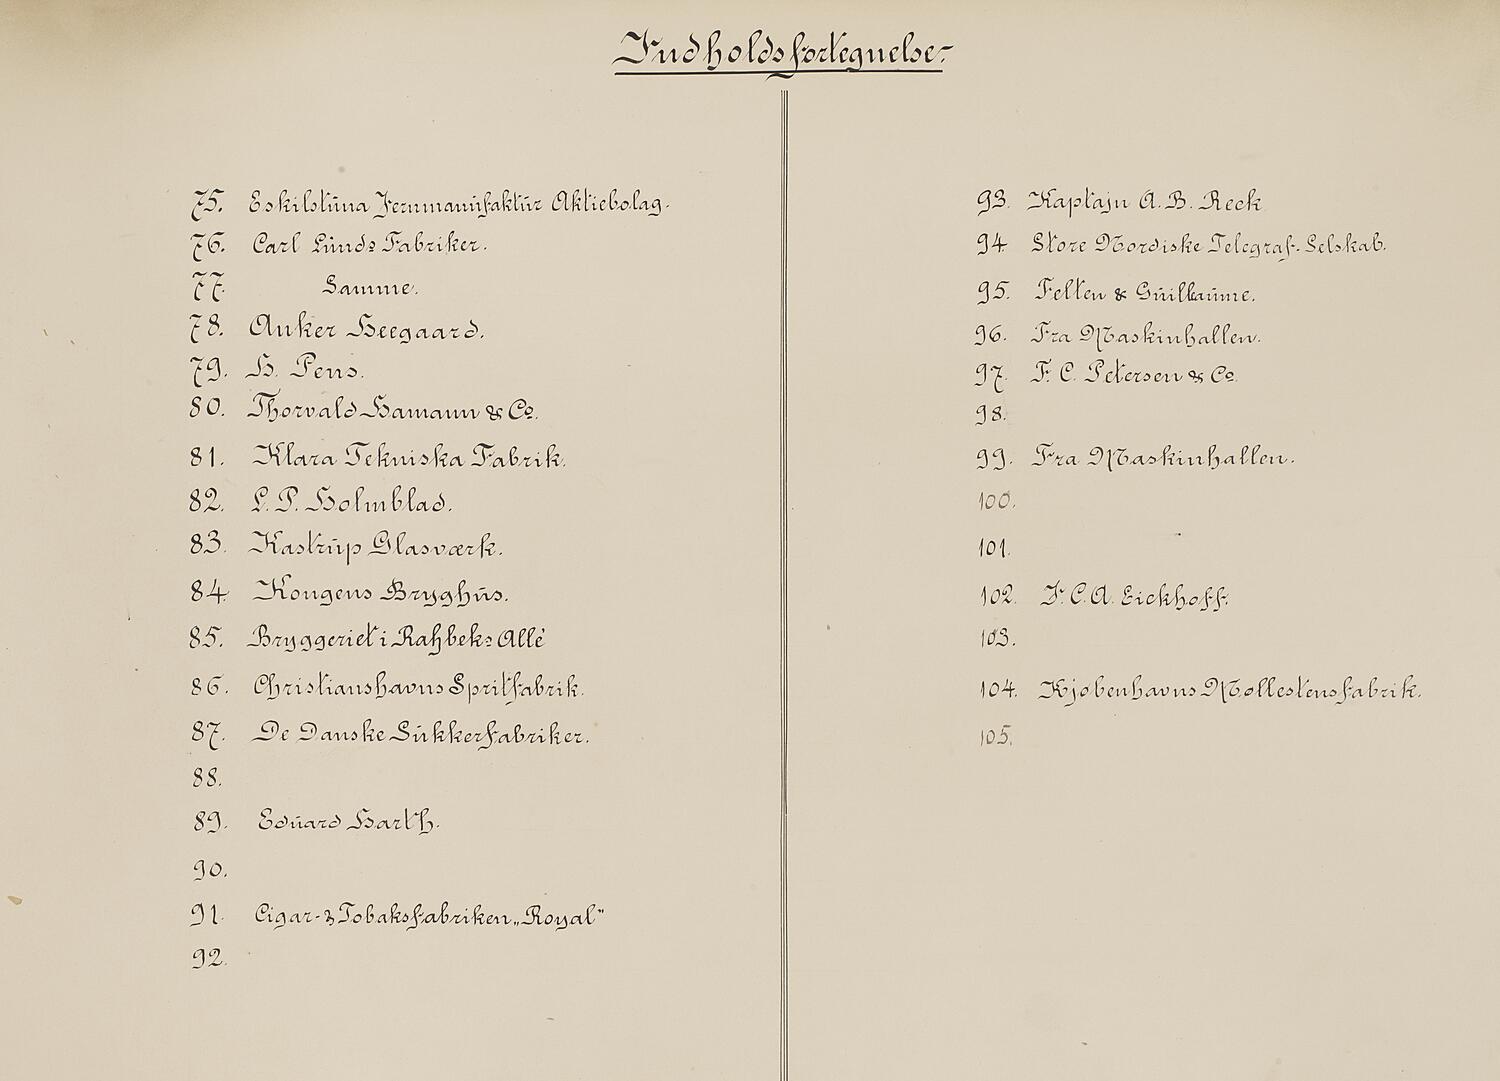 Indholdsfortegnelse.
75. Eskilstuna Jernmanufaktur Aktiebolag.
76. Carl Lunds Fabriker.
77. Samme.
78. Anker Heegaard.
79. H. Pens.
80. Thorvald Hamann & Co.
81. Klara Tekniska Fabrik.
82. L. P. Holmblad.
83. Kastrup Glasværk.
84. Kongens Bryghus.
85. Bryggeriet i Rahbeks Allé
86. Christianshavns Spritfabrik.
87. De Danske Sukkerfabriker.
88.
89. Eduard Harth.
90.
91. Cigar- & Tobaksfabriken „Royal"
92.
93. Kaptajn A. B. Reck
94. Store Nordiske Telegraf-Selskab.
95. Felten & Guilleaume.
96. Fra Maskinhallen.
97. F. C. Petersen & Co.
98.
99. Fra Maskinhallen.
100.
101.
102. F. C. A. Eickhoff.
103.
104. Kjøbenhavns Møllestensfabrik.
105.